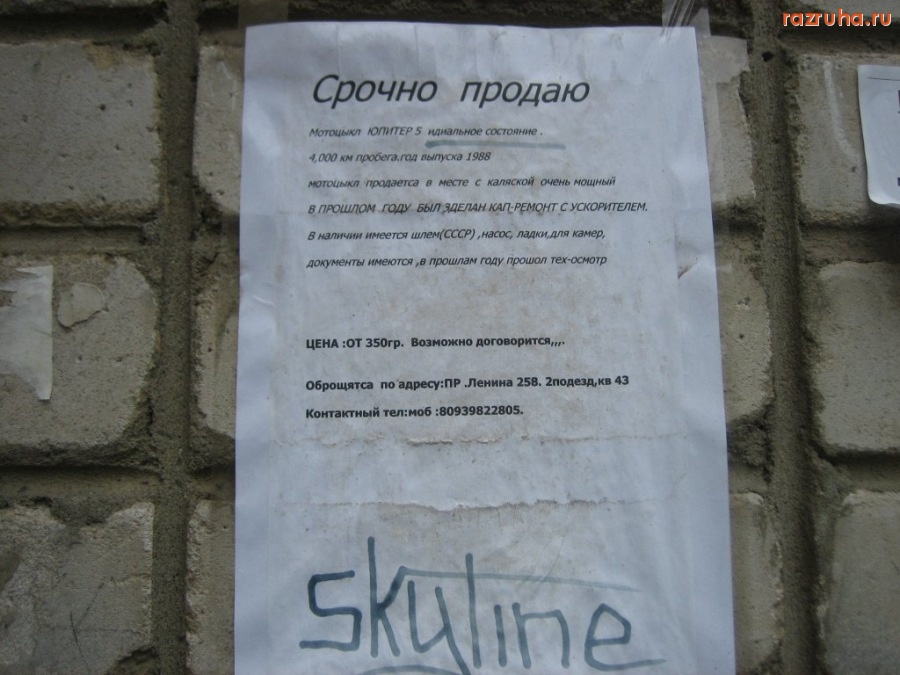 razruha.ru
Срочно продаю
Мотоцыкл ЮПИТЕР 5 идиальное состояние .
4,000 км пробега.год выпуска 1988
мотоцыкл продаетса в месте с каляской очень мощный
В ПРОШЛОМ ГОДУ БЫЛ ЗДЕЛАН КАП-РЕМОНТ С УСКОРИТЕЛЕМ.
В наличии имеется шлем(СССР) ,насос, ладки,для камер,
документы имеются ,в прошлам году прошол тех-осмотр
ЦЕНА :ОТ 350гр. Возможно договорится,,,.
Оброщятса по адресу:ПР .Ленина 258. 2подезд,кв 43
Контактный тел:моб :80939822805.
skyline